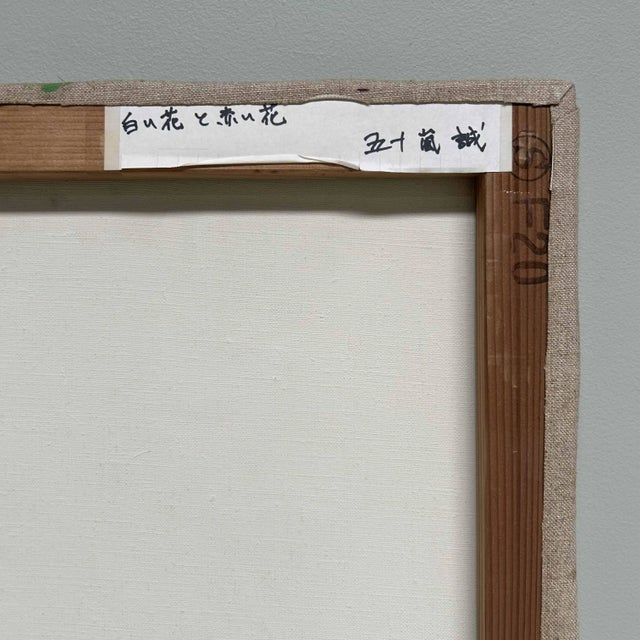 白い花と赤い花
五十嵐 誠
Ⓢ F-20